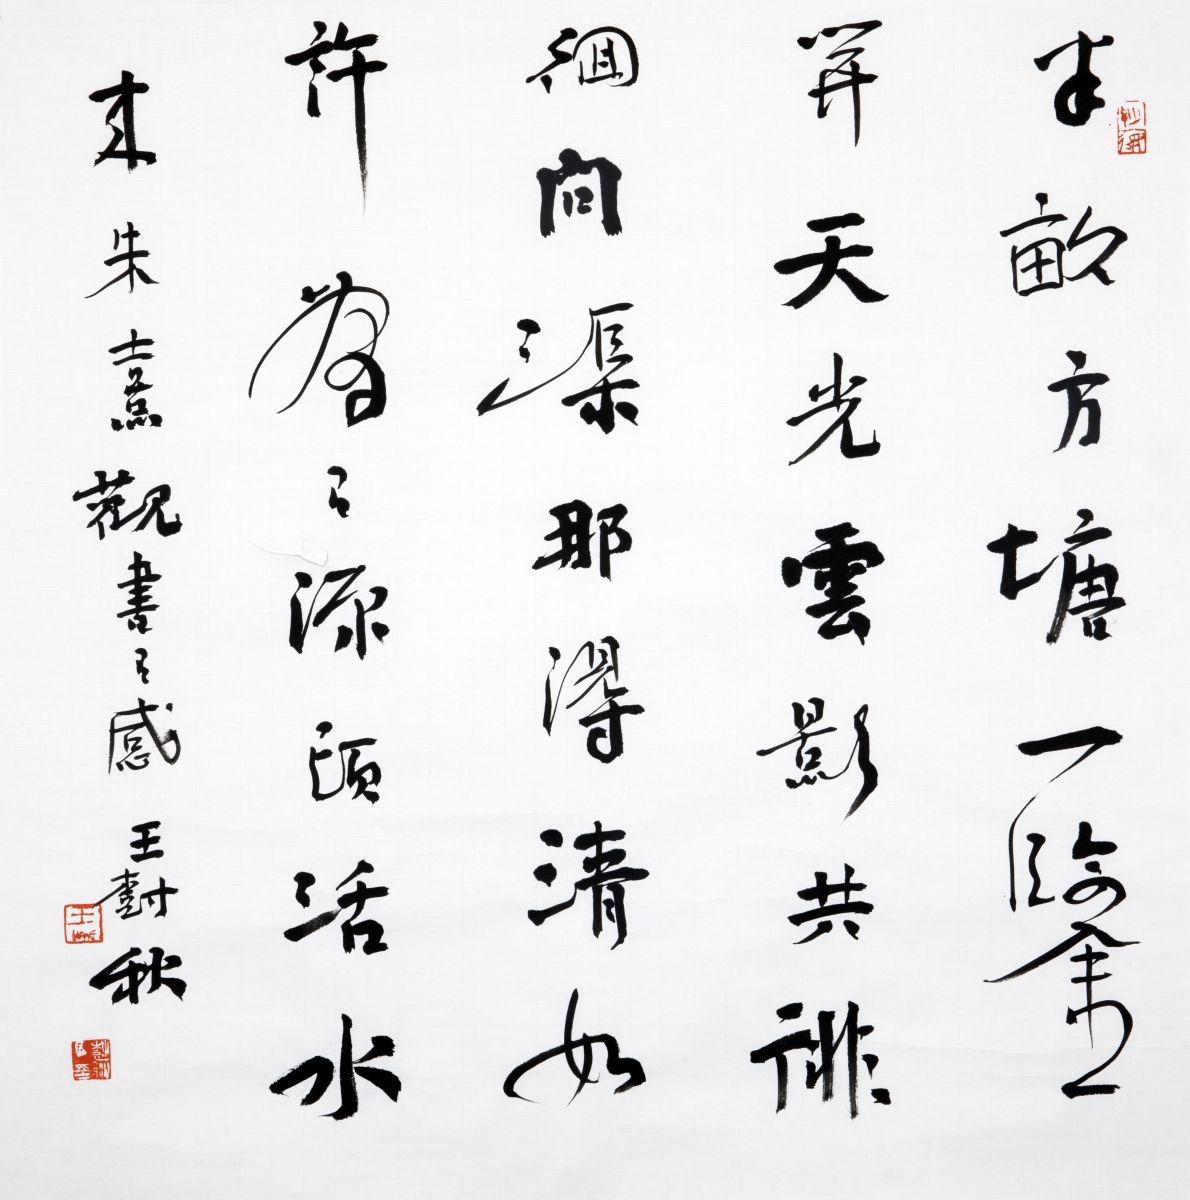 半畝方塘一鑒
開天光雲影共徘
徊問渠那得清如
許為有源頭活水
來朱熹觀書有感王尌秋
王
WANG